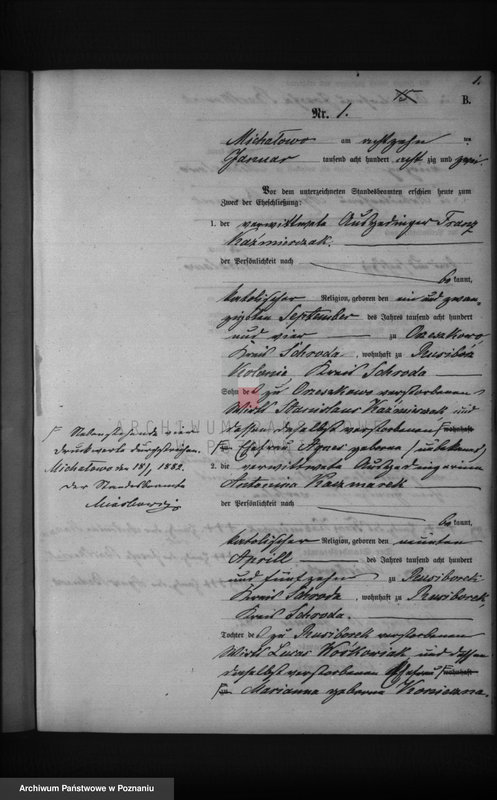 1.
15
B.
Nr. 1.
Michałowo am achtzehn ten
Januar tausend acht hundert acht zig und zwei
Vor dem unterzeichneten Standesbeamten erschien heute zum
Zweck der Eheschließung:
1. der verwittwete Auszedinger Franz
Kaźmierczak.
der Persönlichkeit nach
be kannt,
katolischer Religion, geboren den ein und zwan
zigsten September des Jahres tausend acht hundert
und vier zu Orzeszkowo
Kreis Schroda, wohnhaft zu Rusibórz
Kolonie Kreis Schroda
Sohn des zu Orzeszkowo verstorbenen
Wirth Stanislaus Kaźmierczak und
dessen daselbst verstorbenen
Ehefrau Agnes geborne (unbekannt)
2. die verwittwete
Antonina Kaczmarek
der Persönlichkeit nach
be kannt,
katolischer Religion, geboren den neunten
Aprill des Jahres tausend acht hundert
und fünfzehn zu Rusiborek
Kreis Schroda, wohnhaft zu Rusiborek,
Kreis Schroda.
Tochter des zu Rusiborek verstorbenen
Wirth Lucas und dessen
daselbst verstorbenen Ehefrau
Marianna geborne
F Nebenstehende vier
Druckworte durchstrichen.
Michałowo den 18/1 1882.
Der Standesbeamte
ARCHIWUM PAŃSTWOWE
POZNAŃ
Archiwum Państwowe w Poznaniu